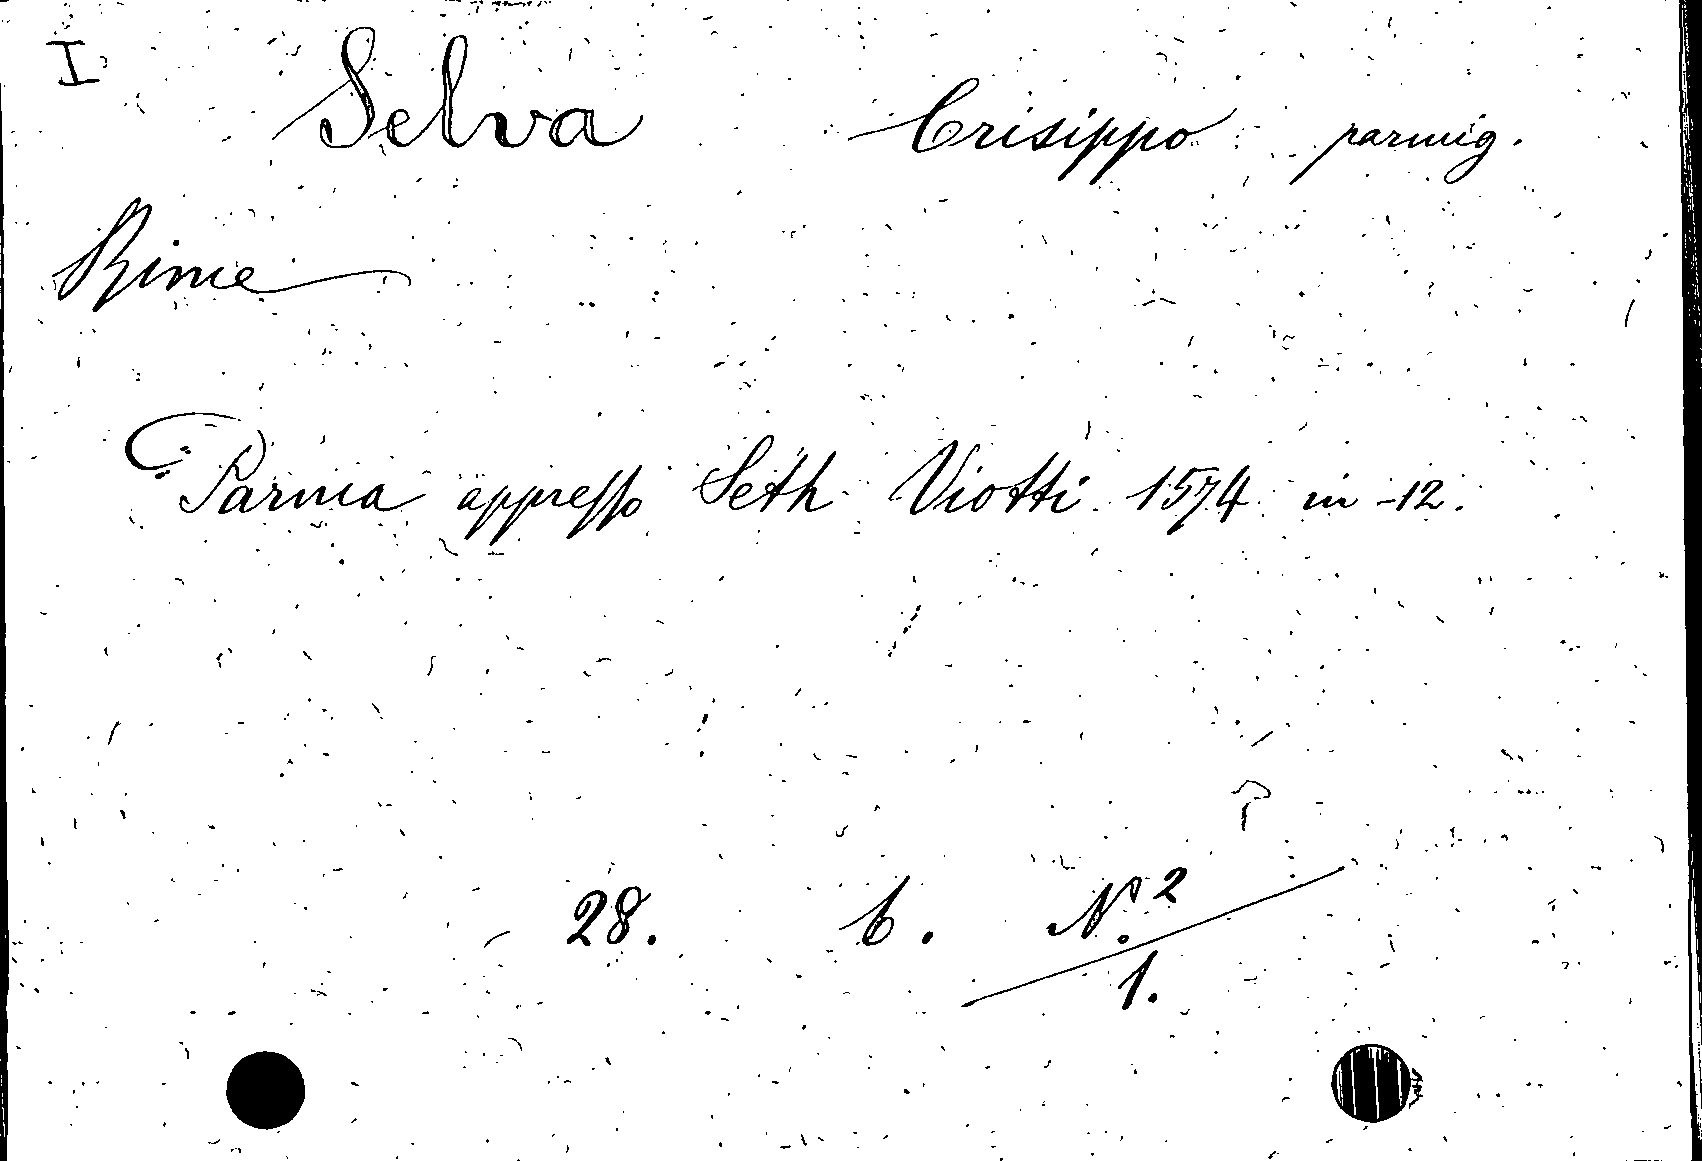 I
Selva Crisippo parmig.
Rime
Parma appresso Seth Viotti 1574 in -12.
28. b. N.º 2
1.